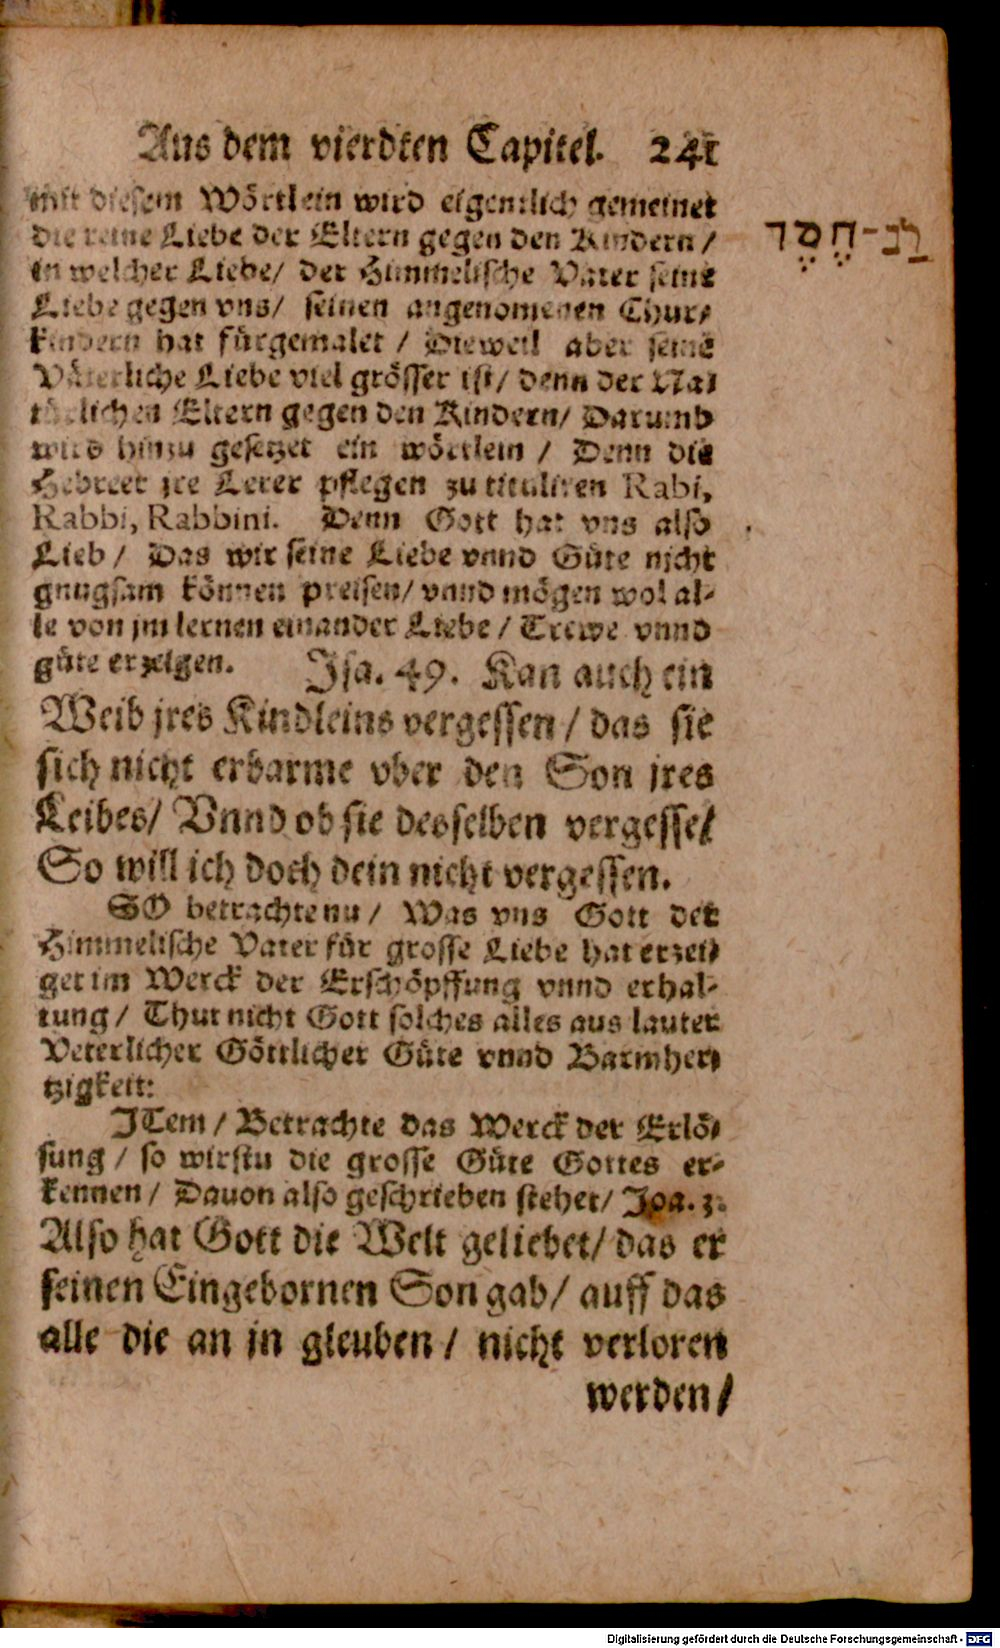 Aus dem vierdten Capitel. 241
mit diesem Wörtlein wird eigentlich gemeinet
die reine Liebe der Eltern gegen den Kindern /
in welcher Liebe / der Himmelische Vater seine
Liebe gegen vns / seinen angenomenen Chur-
kindern hat fürgemalet / Dieweil aber seine
Väterliche Liebe viel grösser ist / denn der Na-
türlichen Eltern gegen den Kindern / Darumb
wird hinzu gesetzet ein wörtlein / Denn die
Hebreer jre Lerer pflegen zu tituliren Rabi,
Rabbi, Rabbini. Denn Gott hat vns also
Lieb / Das wir seine Liebe vnnd Güte nicht
gnugsam können preisen / vnnd mögen wol al-
le von jm lernen einander Liebe / Trewe vnnd
güte erzeigen. Isa. 49. Kan auch ein
Weib jres Kindleins vergessen / das sie
sich nicht erbarme vber den Son jres
Leibes / Vnnd ob sie desselben vergesse /
So will ich doch dein nicht vergessen.
SO betrachte nu / Was vns Gott der
Himmelische Vater für grosse Liebe hat erzei-
get im Werck der Erschöpffung vnnd erhal-
tung / Thut nicht Gott solches alles aus lauter
Veterlicher Göttlicher Güte vnnd Barmher-
tzigkeit:
JTem / Betrachte das Werck der Erlö-
sung / so wirstu die grosse Güte Gottes er-
kennen / Dauon also geschrieben stehet / Joa. 3.
Also hat Gott die Welt geliebet / das er
seinen Eingebornen Son gab / auff das
alle die an jn gleuben / nicht verloren
werden /
רַב-חֶסֶד
Digitalisierung gefördert durch die Deutsche Forschungsgemeinschaft - DFG